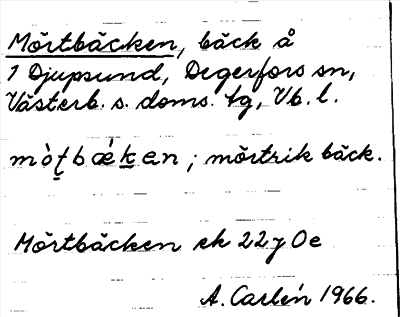 Mörtbäcken, bäck å
1 Djupsund, Degerfors sn,
Västerb. s. doms. tg, Vb. l.
mò̀t̬bǽḵen ; mörtrik bäck.
Mörtbäcken ek 22 7 0e
A. Carlén 1966.